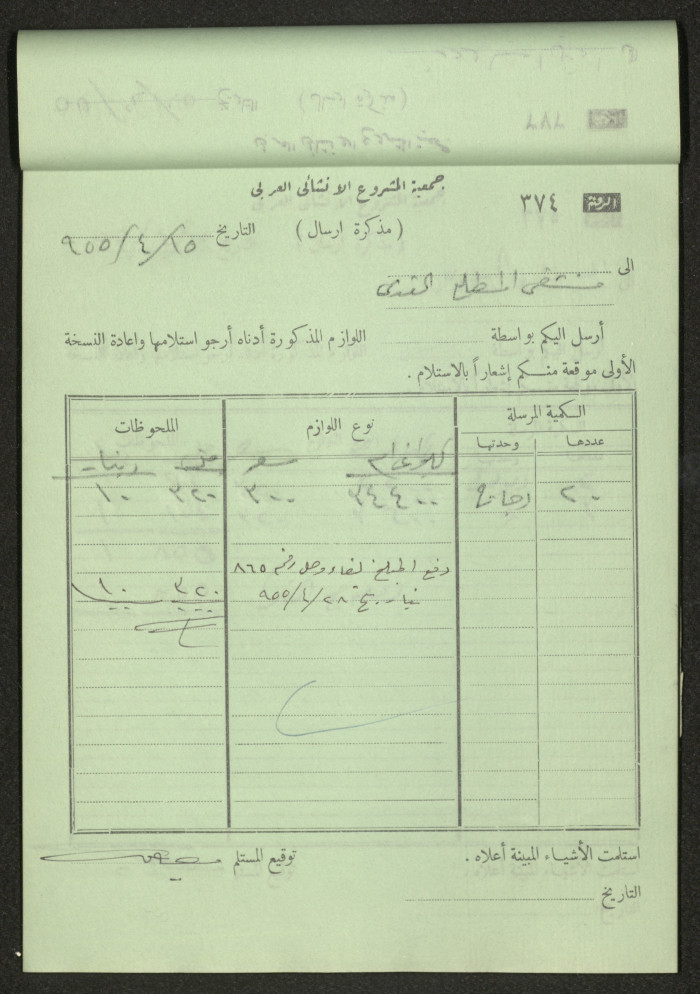 جمعية المشروع الانشائى العربى
الرقم ٣٧٤
( مذكرة ارسال )
التاريخ ٢٥/٤/٩٥٥
الى مستشفى المطلع القدس
أرسل اليكم بواسطة اللوازم المذكورة أدناه أرجو استلامها واعادة النسخة
الأولى موقعة منكم إشعاراً بالاستلام .
الكمية المرسلة نوع اللوازم الملحوظات
عددها وحدتها
كيلو غرام سعر فلس دينار
٢٠ دجاجة ٣٤٤٠٠ ٣٠٠ ٣٢٠ ١٠
دفع المبلغ لقاء وصل رقم ٨٦٥
بتاريخ ٢٨/٤/٩٥٥
٣٢٠ ١٠
استلمت الأشياء المبينة أعلاه .
توقيع المستلم
التاريخ